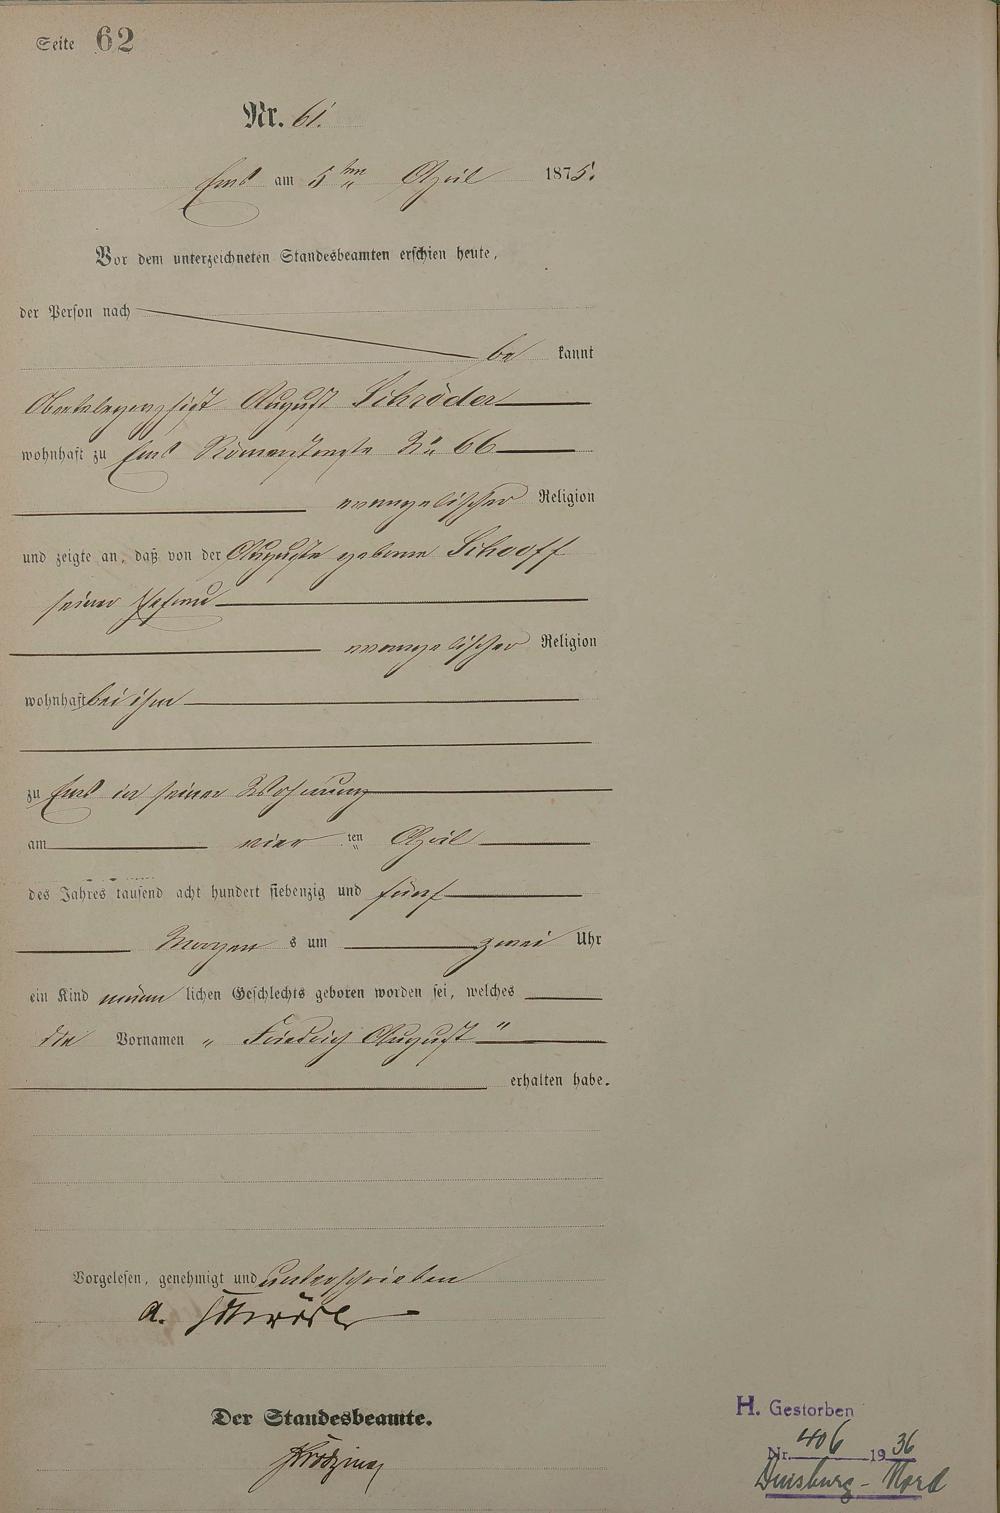 Seite 62
Nr. 61.
Ems am 5ten April 1875.
Vor dem unterzeichneten Standesbeamten erschien heute,
der Person nach
be kannt
August Schröder
wohnhaft zu Ems Römerstraße No 66
evangelischer Religion
und zeigte an, daß von der Auguste geborne Schooff
seiner Ehefrau
evangelischer Religion
wohnhaft bei ihm
zu Ems in seiner Wohnung
am vier ten April
des Jahres tausend acht hundert siebenzig und fünf
Morgen s um zwei Uhr
ein Kind männ lichen Geschlechts geboren worden sei, welches
die Vornamen „ Friedrich August "
erhalten habe.
Vorgelesen, genehmigt und unterschrieben
A. Schröder
Der Standesbeamte.
H. Gestorben
Nr. 406 1936
Duisburg-Nord